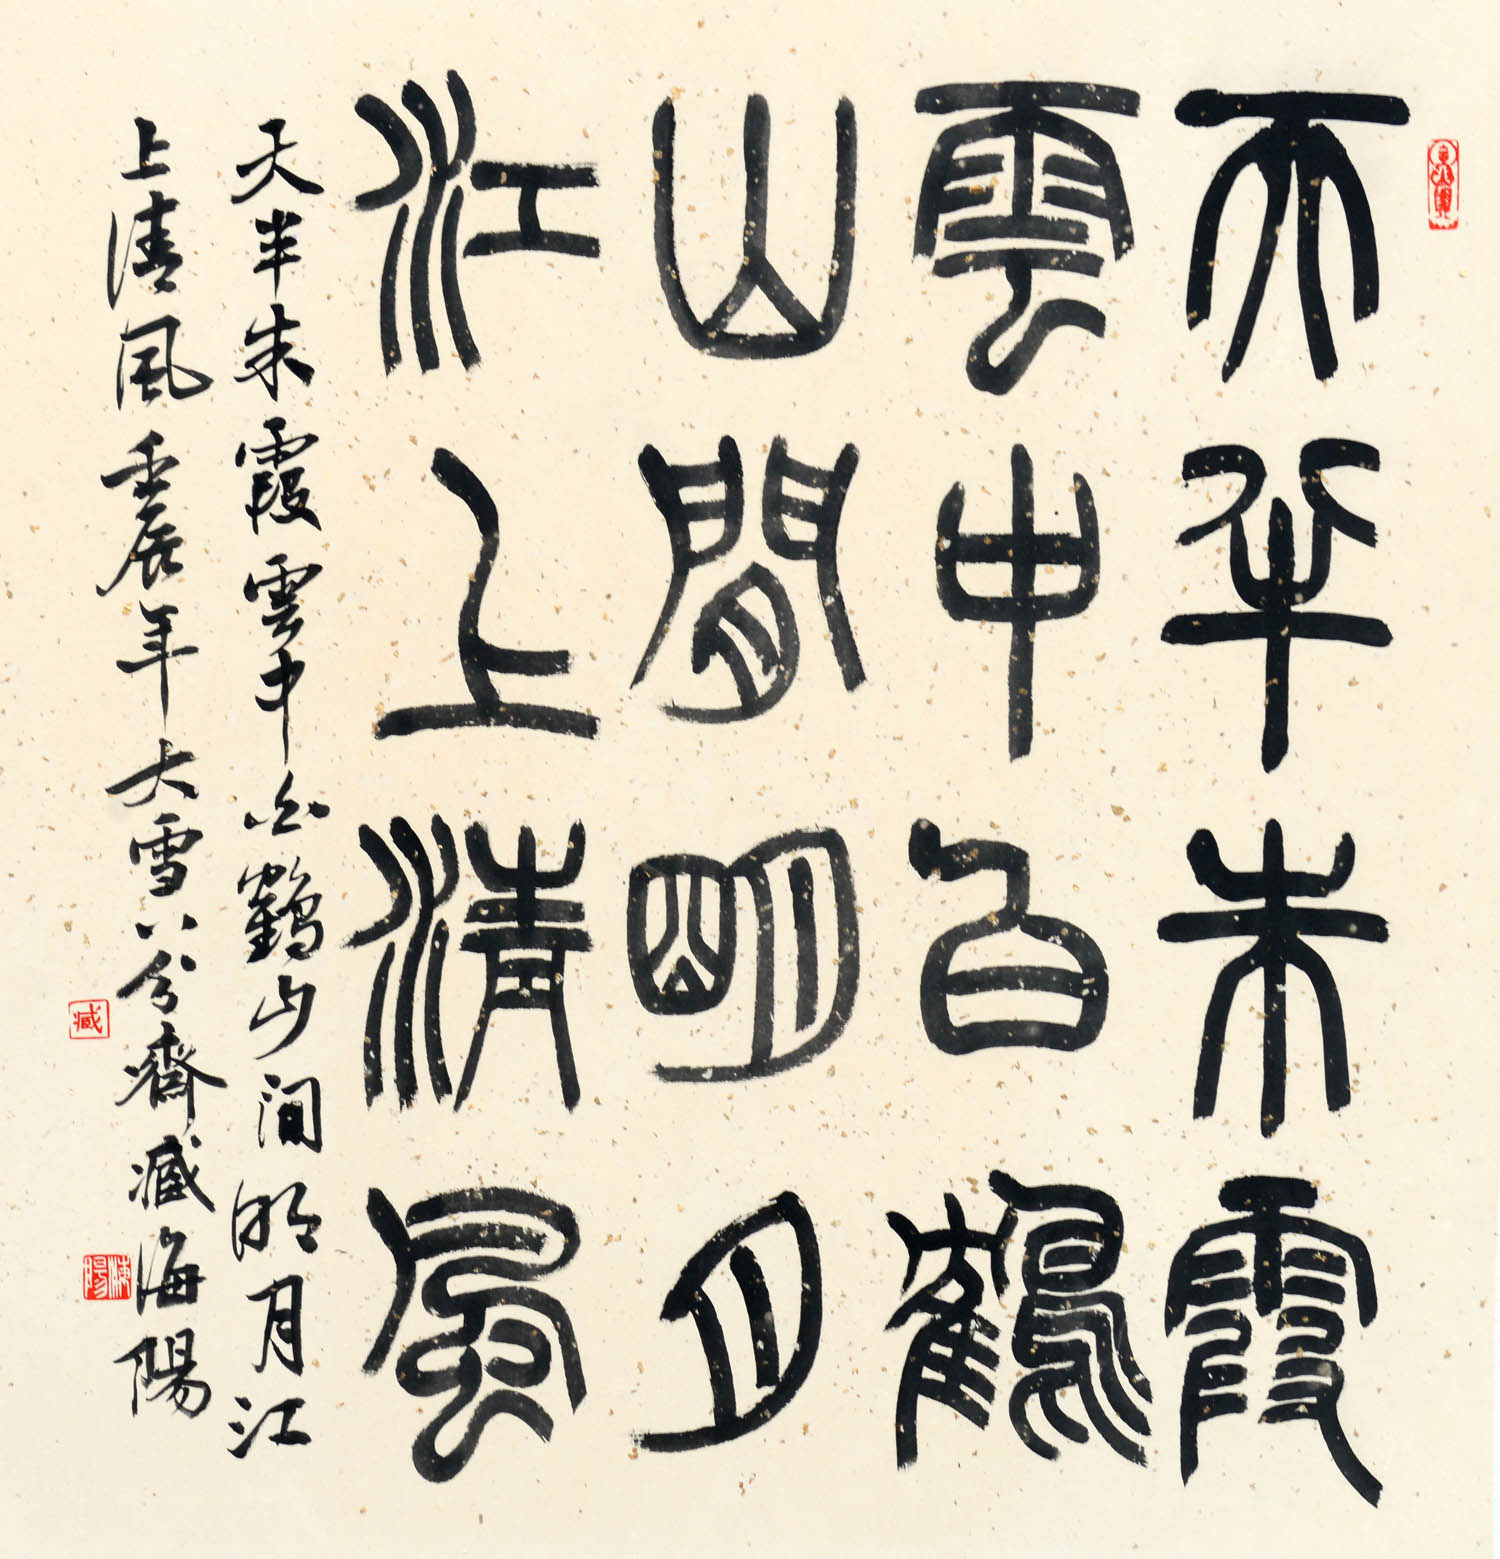 天半朱霞
雲中白鶴
山間明月
江上清風
天半朱霞雲中白鶴山間明月江
上清風 壬辰年大雪八分齋臧海陽
臧
海陽